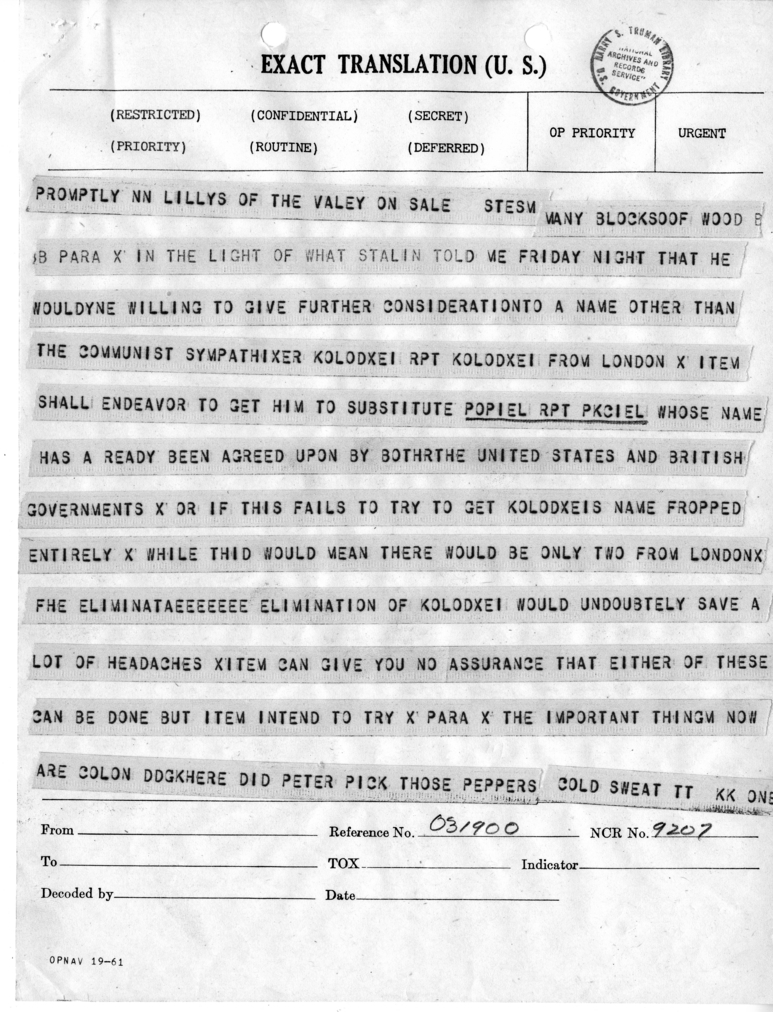 EXACT TRANSLATION (U. S.)
HARRY S. TRUMAN LIBRARY
"NATIONAL
ARCHIVES AND
RECORDS
SERVICE"
U.S. GOVERNMENT
(RESTRICTED) (CONFIDENTIAL) (SECRET)
OP PRIORITY URGENT
(PRIORITY) (ROUTINE) (DEFERRED)
PROMPTLY NN LILLYS OF THE VALEY ON SALE STESM MANY BLOCKSOOF WOOD B
B PARA X IN THE LIGHT OF WHAT STALIN TOLD ME FRIDAY NIGHT THAT HE
WOULDYNE WILLING TO GIVE FURTHER CONSIDERATIONTO A NAME OTHER THAN
THE COMMUNIST SYMPATHIXER KOLODXEI RPT KOLODXEI FROM LONDON X ITEM
SHALL ENDEAVOR TO GET HIM TO SUBSTITUTE POPIEL RPT PKCIEL WHOSE NAME
HAS A READY BEEN AGREED UPON BY BOTHRTHE UNITED STATES AND BRITISH
GOVERNMENTS X OR IF THIS FAILS TO TRY TO GET KOLODXEIS NAME FROPPED
ENTIRELY X WHILE THID WOULD MEAN THERE WOULD BE ONLY TWO FROM LONDONX
FHE ELIMINATAEEEEEEE ELIMINATION OF KOLODXEI WOULD UNDOUBTELY SAVE A
LOT OF HEADACHES X ITEM CAN GIVE YOU NO ASSURANCE THAT EITHER OF THESE
CAN BE DONE BUT ITEM INTEND TO TRY X PARA X THE IMPORTANT THINGM NOW
ARE COLON DDGKHERE DID PETER PICK THOSE PEPPERS COLD SWEAT TT KK ONE
From Reference No. 031900 NCR No. 9207
To TOX Indicator
Decoded by Date
OPNAV 19-61